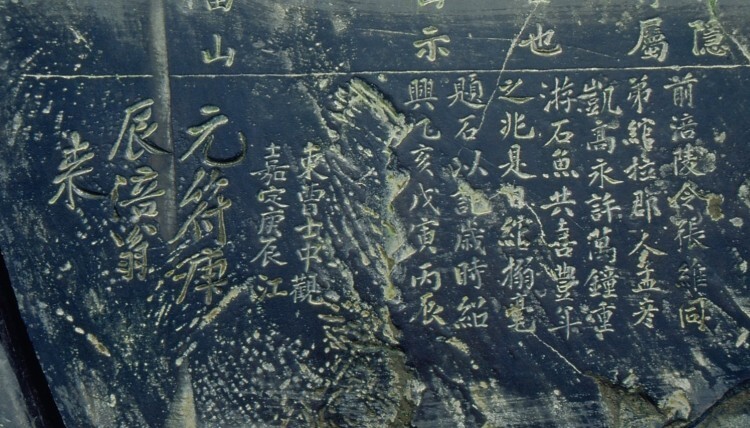 隐
前涪陵令張維同
屬
弟綰拉郡人孟彥
凱高永許萬鍾重
游石魚共喜豐年
也
之兆是日綰搦毫
題石以記歲時紹
示
興乙亥戊寅丙辰
東曹士中觀
嘉定庚辰江
山
元符庚
辰涪翁
来